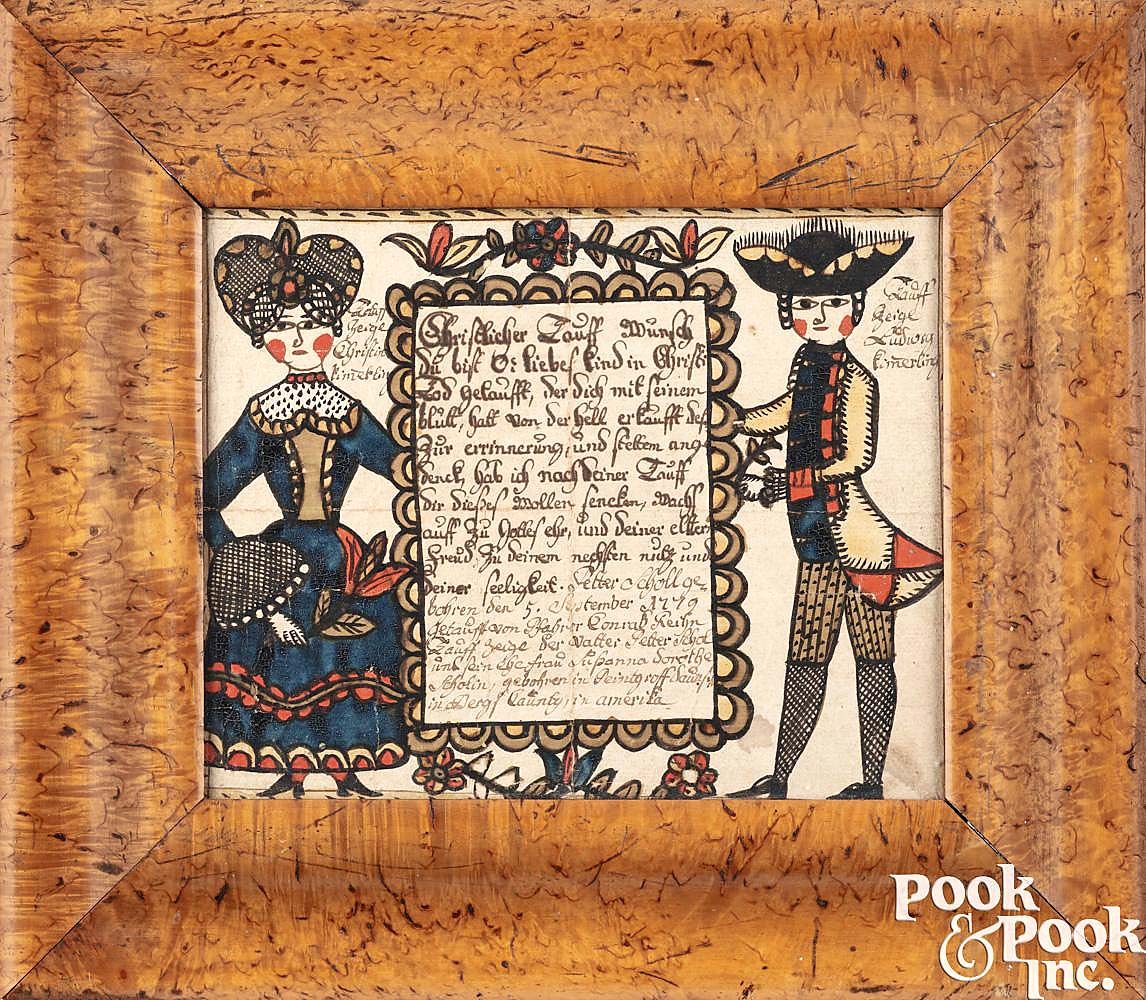 Tauff
Zeige
Christin
kimerling
Christlicher Tauff Wunsch
Du bist O: liebes kind in Christi
Tod getaufft, der dich mit seinem
bluth, hatt von der hell erkaufft det
Zur errinnerung, und stettem ang
denck, hab ich nach deiner Tauff
dir dieses Wollen sencken, Wachs
auff Zu Gottes ehr, und deiner elter
Freud, Zu deinem nechsten nutz und
deiner seeligkeit. Petter Scholl ge-
bohren den 5. September 1779
getaufft von Pfahrer Conrad
Tauff Zeige der Vatter Petter
und sein Ehe frau Susanna dorothe
Scholin, gebohren in
in Bergs Caunty, in amerika
Tauff
Zeige
Ludwig
kimerling
Pook
& Pook
Inc.